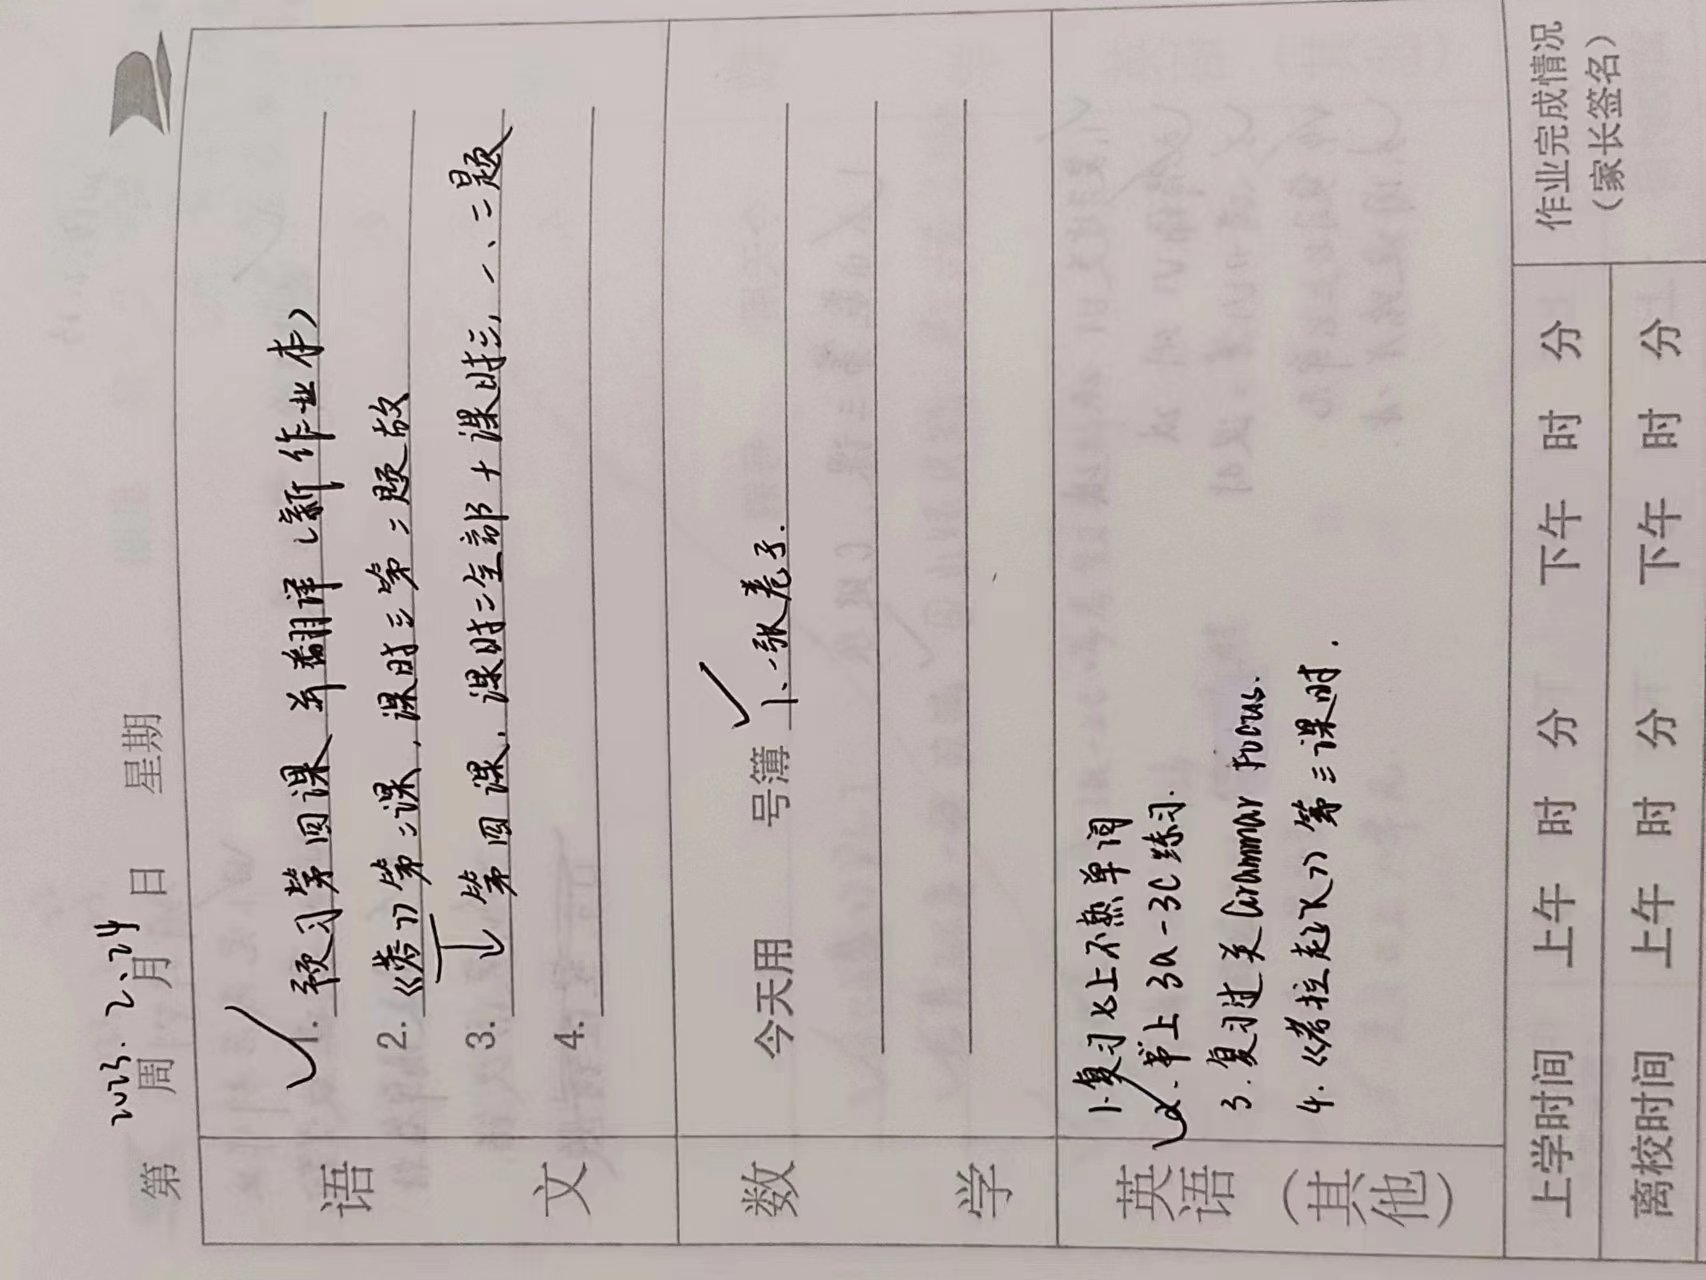 2023. 2、24
第 周 月 日 星期
语文
1. 预习第四课 并翻译（新作业本）
2. 《蒡》第二课，课时三第二题改
3. 第四课，课时二全部+课时三，一、二题
4.
数学
今天用 号簿 1、一张卷子.
英语（其他）
1. 复习 上不熟单词
2. 书上 3a-3c 练习.
3. 复习过关 Grammar Focus.
4. 第三课时.
上学时间 上午 时 分 下午 时 分
离校时间 上午 时 分 下午 时 分
作业完成情况
（家长签名）